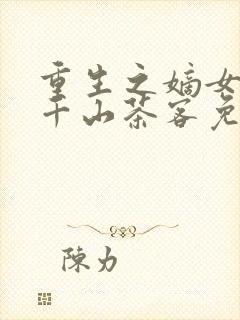 重生之嫡女
千山茶客免
陳力